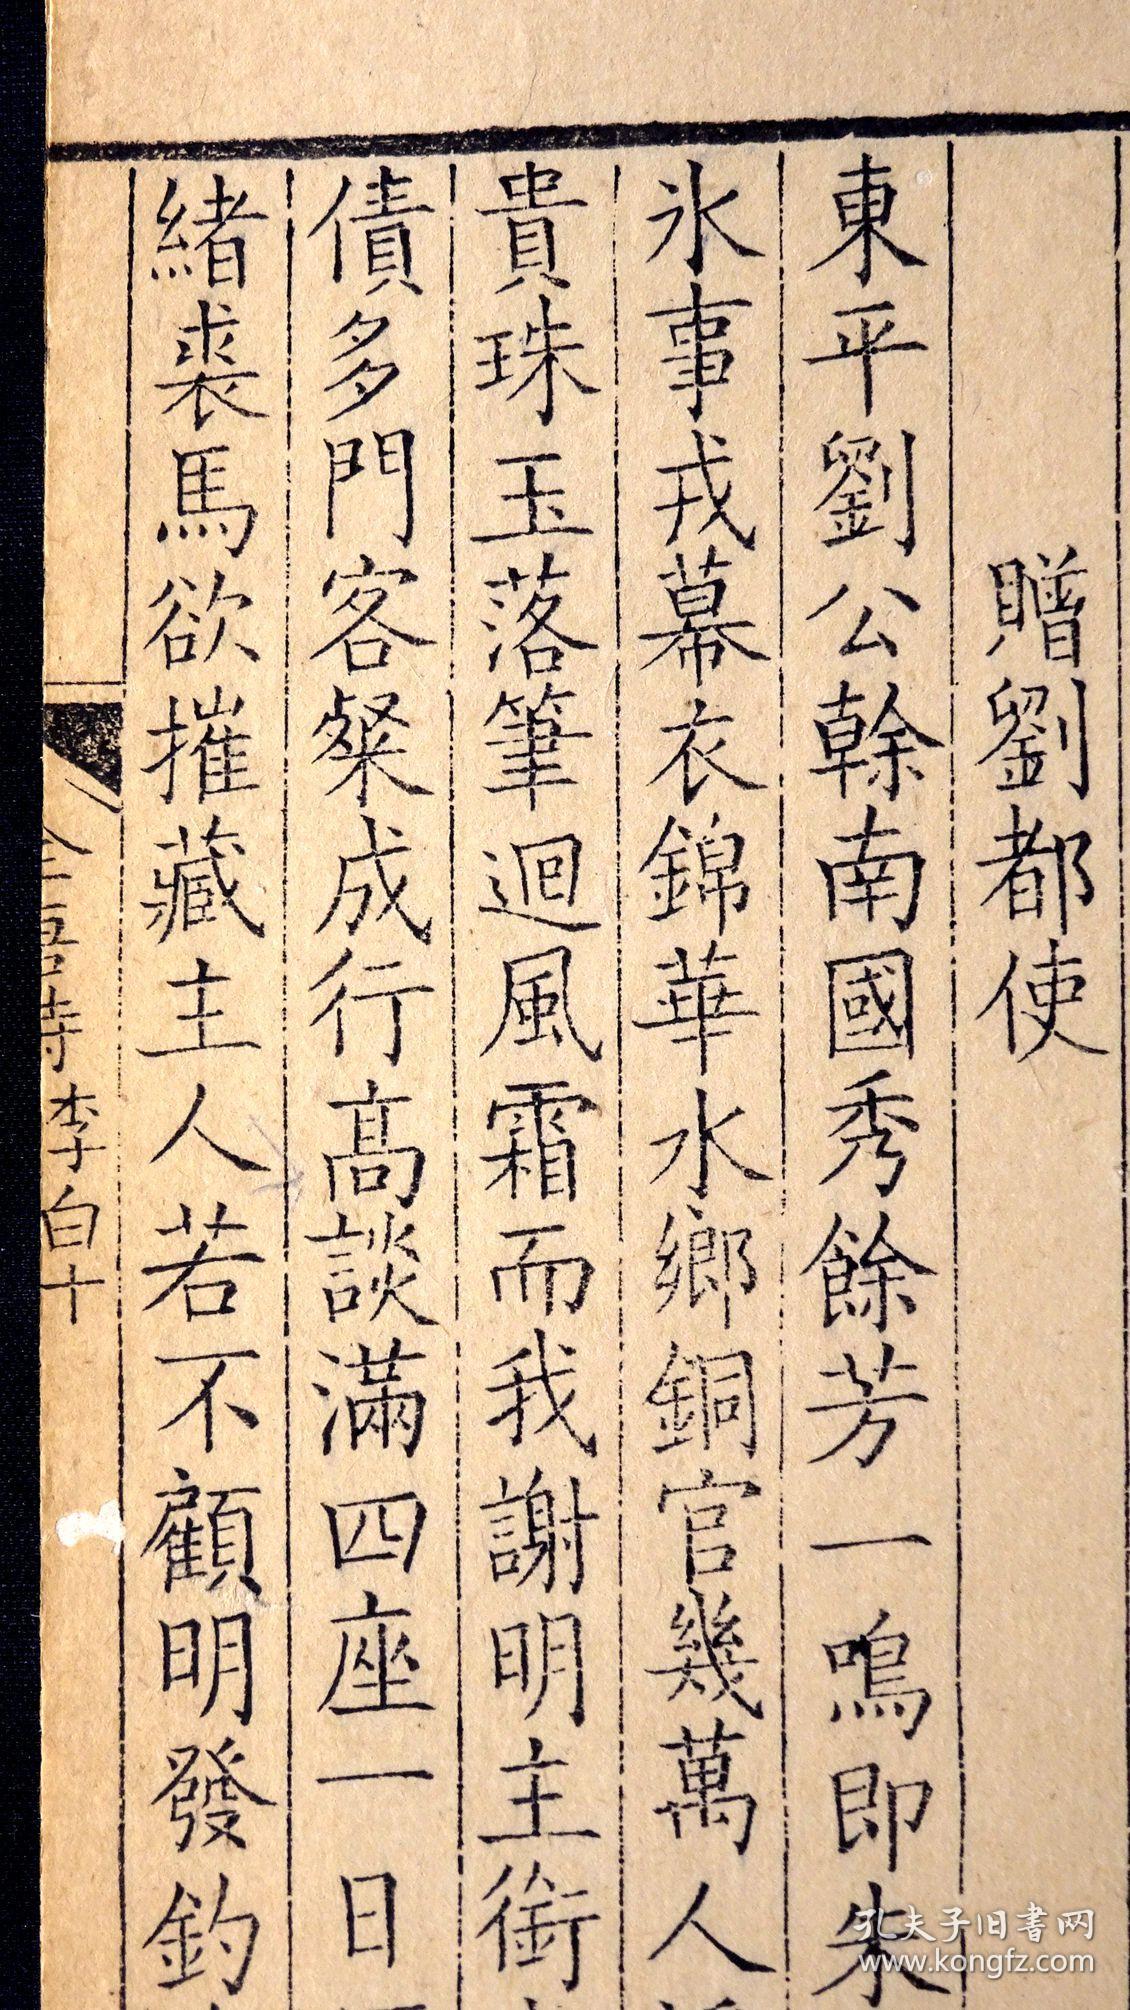 贈劉都使
東平劉公幹南國秀餘芳一鳴即朱
氷事戎幕衣錦華水鄉銅官幾萬人
貴珠玉落筆迴風霜而我謝明主銜
債多門客粲成行高談滿四座一日
緒裘馬欲摧藏主人若不顧明發釣
全唐詩 李白十
孔夫子旧書网
www.kongfz.com